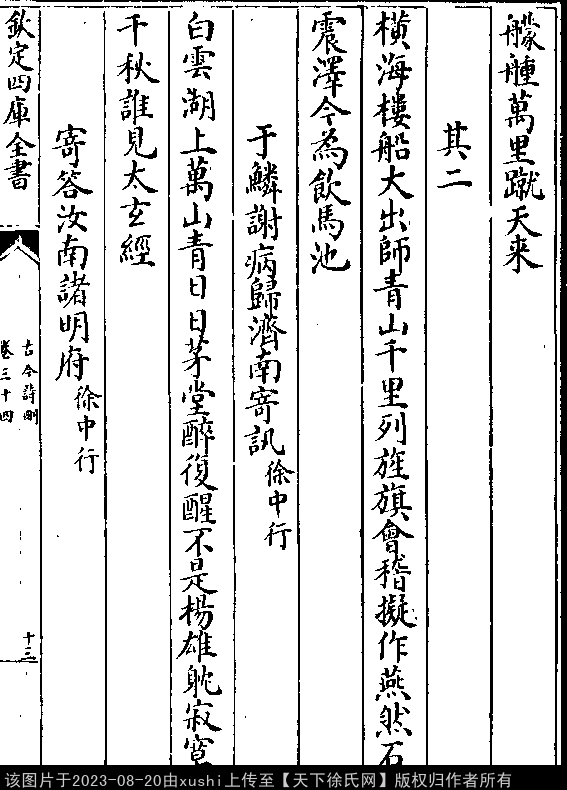 艨艟萬里蹴天来
其二
橫海樓船大出師青山千里列旌旗會稽擬作燕然石
震澤今為飲馬池
于鱗謝病歸濟南寄訊徐中行
白雲湖上萬山青日日茅堂醉復醒不是楊雄躭寂寞
千秋誰見太玄經
寄答汝南諸明府徐中行
欽定四庫全書
古今詩刪
卷三十四
十三
该图片于2023-08-20由xushi上传至【天下徐氏网】版权归作者所有